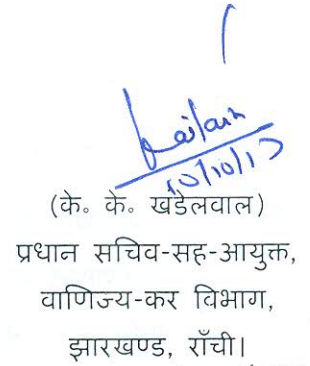 10/10/17
(के॰ के॰ खंडेलवाल)
प्रधान सचिव-सह-आयुक्त,
वाणिज्य-कर विभाग,
झारखण्ड, राँची।